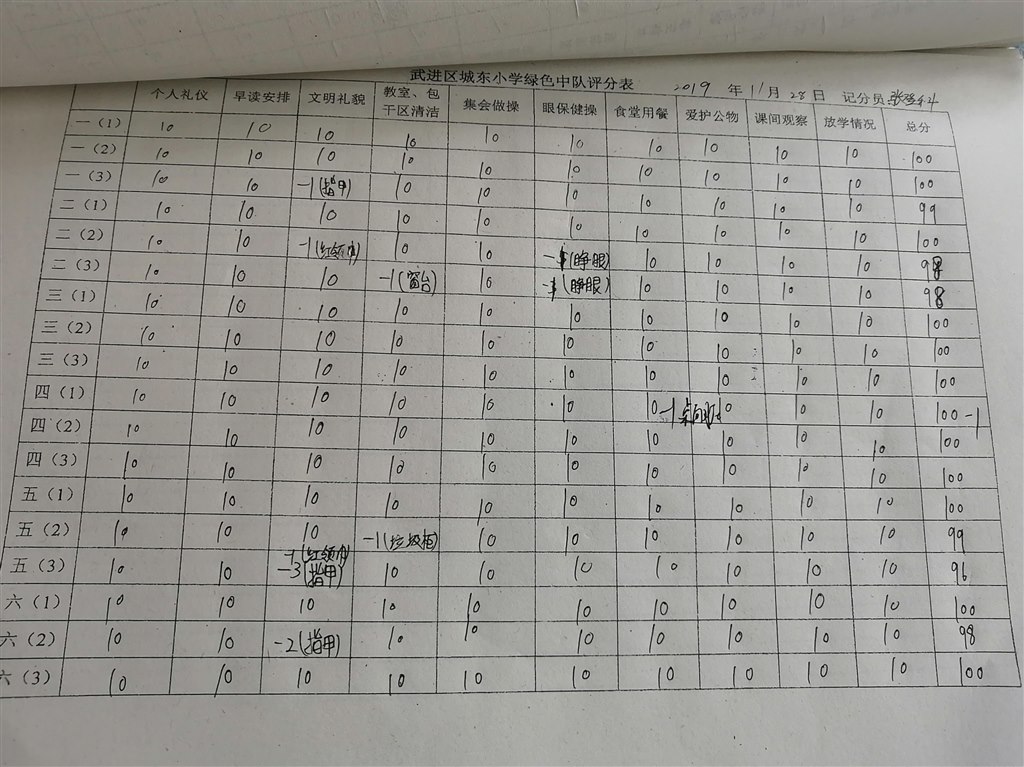 武进区城东小学绿色中队评分表 2019 年 11 月 28 日 记分员
个人礼仪 早读安排 文明礼貌 教室、包干区清洁 集会做操 眼保健操 食堂用餐 爱护公物 课间观察 放学情况 总分
一（1） 10 10 10 10 10 10 10 10 10 10 100
一（2） 10 10 10 10 10 10 10 10 10 10 100
一（3） 10 10 -1（指甲） 10 10 10 10 10 10 10 99
二（1） 10 10 10 10 10 10 10 10 10 10 100
二（2） 10 10 -1（红领巾） 10 10 -1（睁眼） 10 10 10 10 98
二（3） 10 10 10 -1（窗台） 10 -1（睁眼） 10 10 10 10 98
三（1） 10 10 10 10 10 10 10 10 10 10 100
三（2） 10 10 10 10 10 10 10 10 10 10 100
三（3） 10 10 10 10 10 10 10 10 10 10 100
四（1） 10 10 10 10 10 10 10 -1 10 10 10 100 -1
四（2） 10 10 10 10 10 10 10 10 10 10 100
四（3） 10 10 10 10 10 10 10 10 10 10 100
五（1） 10 10 10 10 10 10 10 10 10 10 100
五（2） 10 10 10 -1（垃圾桶） 10 10 10 10 10 10 99
五（3） 10 10 -1（红领巾） -3（指甲） 10 10 10 10 10 10 10 96
六（1） 10 10 10 10 10 10 10 10 10 10 100
六（2） 10 10 -2（指甲） 10 10 10 10 10 10 10 98
六（3） 10 10 10 10 10 10 10 10 10 10 100